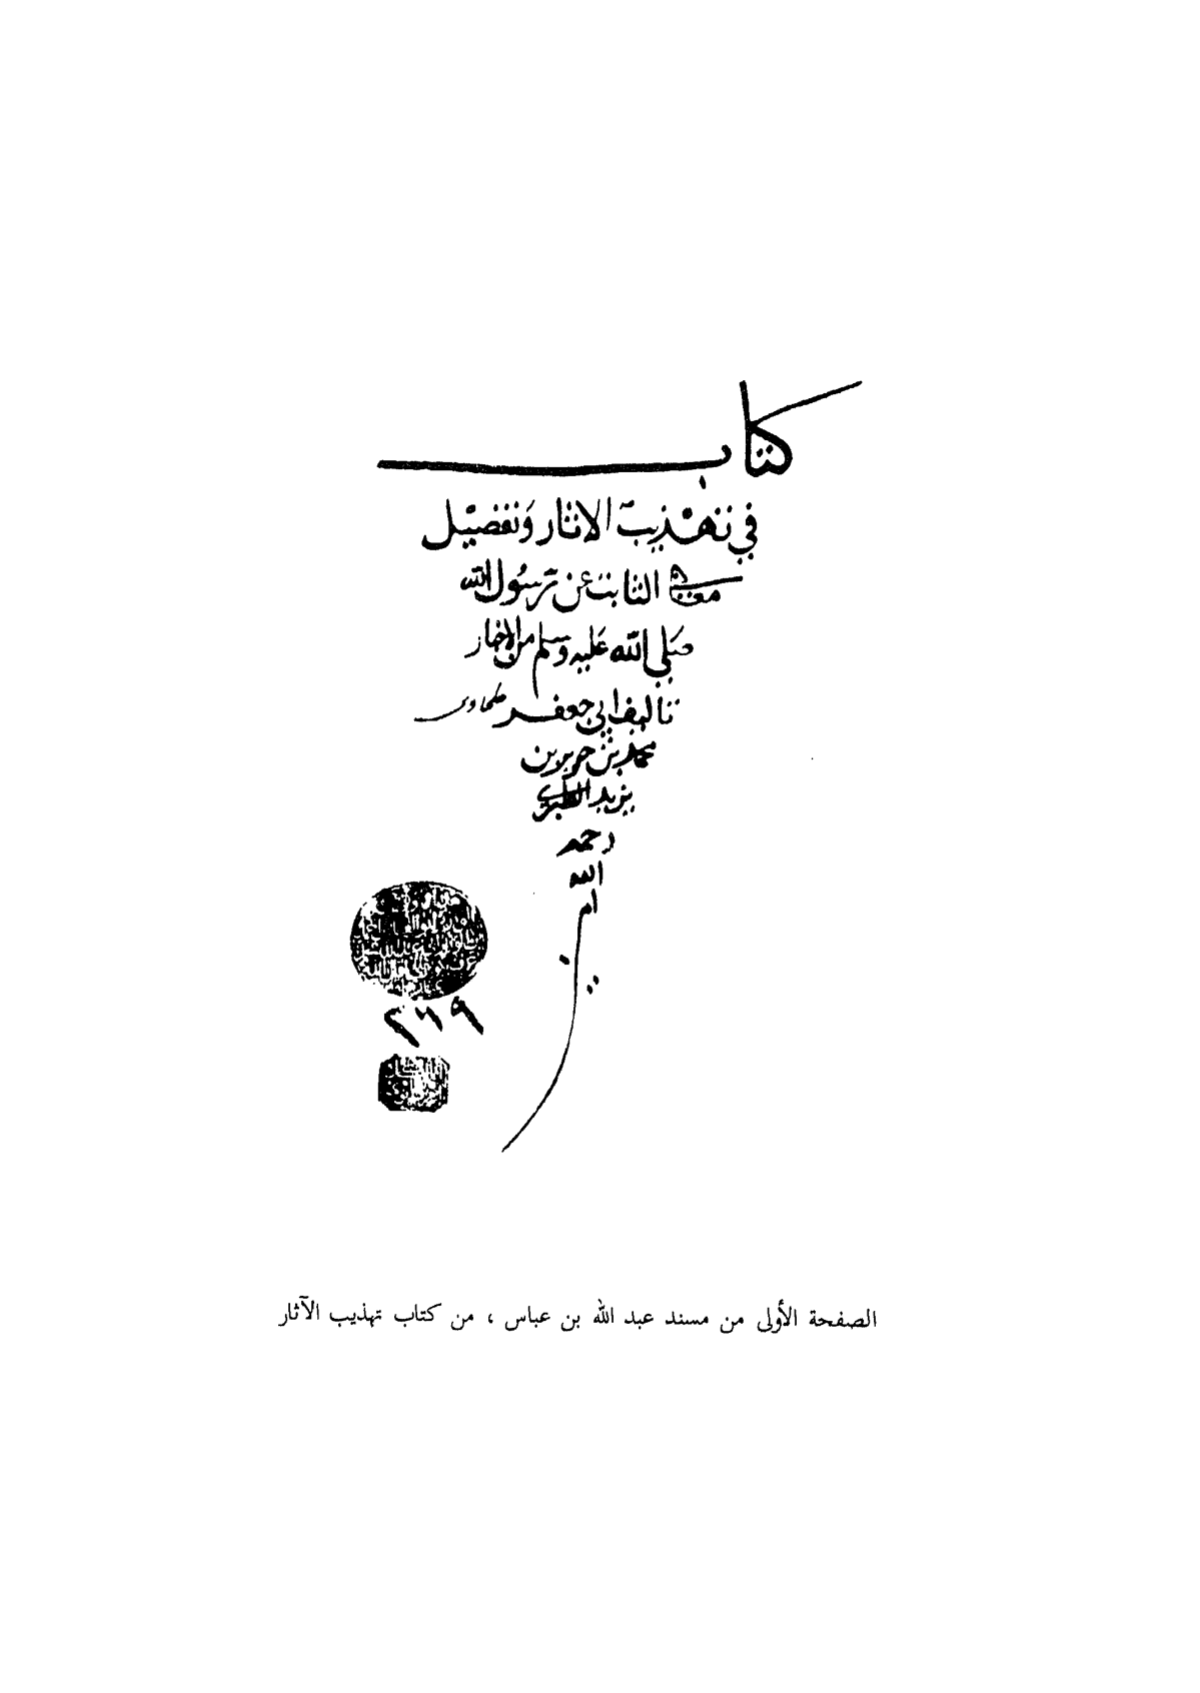 كتاب
في تهذيب الاثار وتفصيل
معاني الثابت عن رسول الله
صلى الله عليه وسلم من الاخبار
تاليف ابي جعفر طحاوى
محمد بن جرير بن
يزيد الطبري
رحمه
الله
امين
٢٦٩
الصفحة الأولى من مسند عبد الله بن عباس ، من كتاب تهذيب الآثار